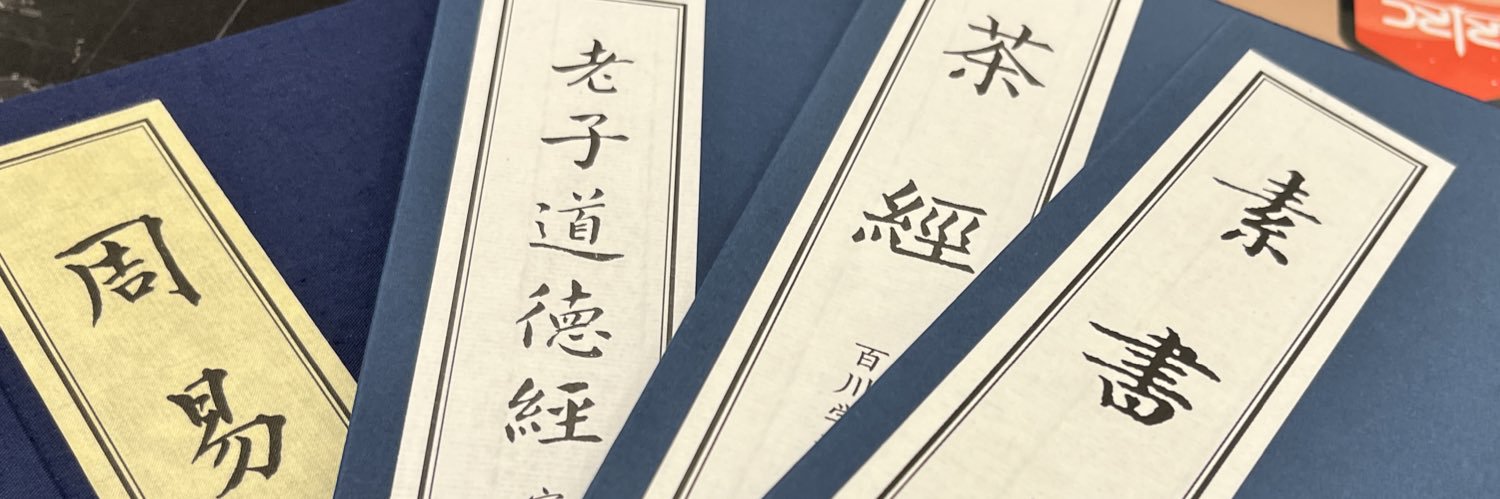 周易
老子道德經
茶經
百川学
素書